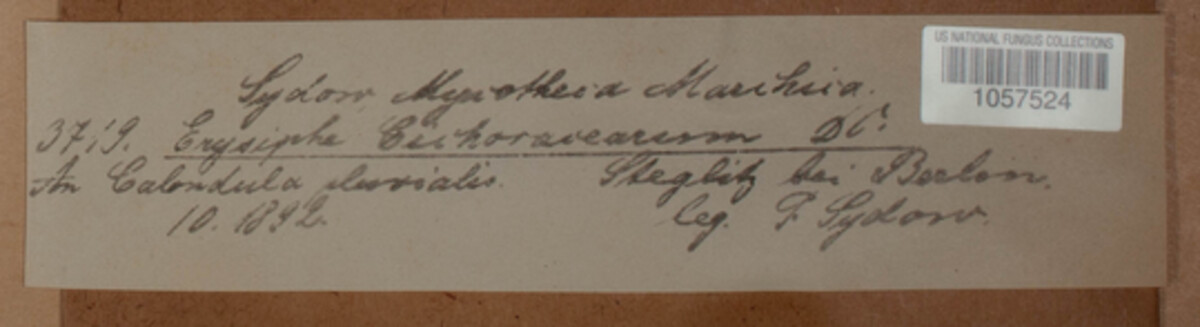 Sydow, Mycotheca Marchica.
3719. Erysiphe Cichoracearum DC.
An Calendula pluvialis. Steglitz bei Berlin.
10. 1892. leg. P. Sydow.
US NATIONAL FUNGUS COLLECTIONS
1057524